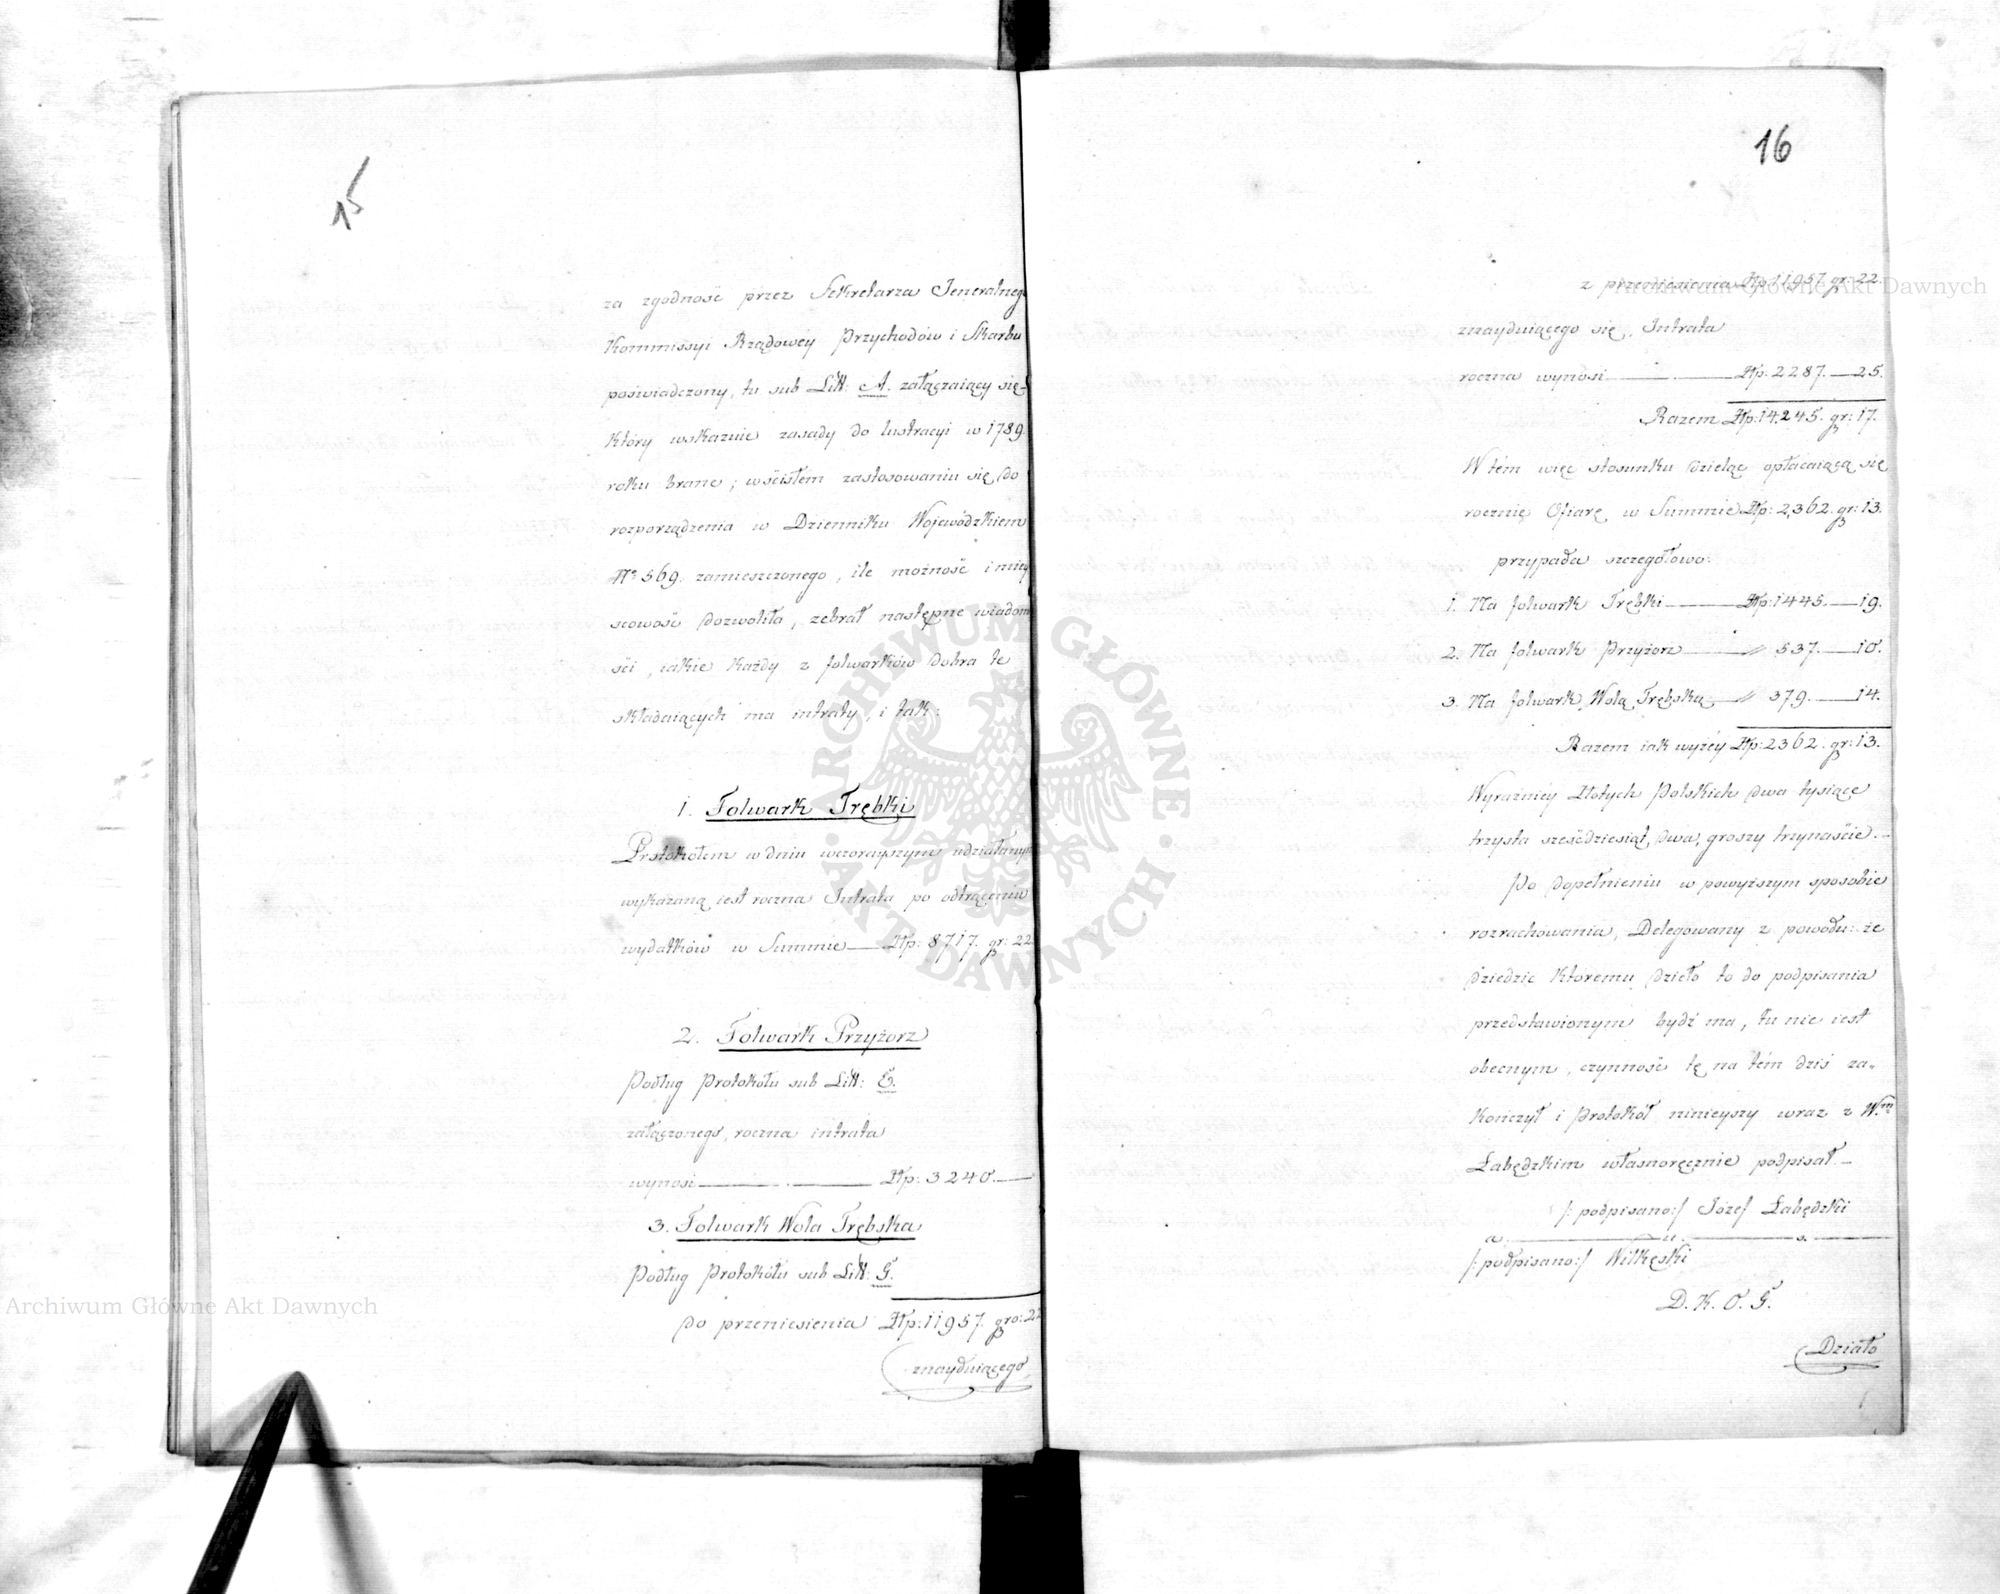 15
za zgodność przez Sekretarza Jeneralnego
Kommissyi Rządowéy Przychodów i Skarbu
poświadczony, tu sub Litt: A. załączaiący się
który wskazuie zasady do lustracyi w 1789.
roku brane; wścisłem zastosowaniu się do
rozporządzenia w Dzienniku Wojewódzkiem
Nr 569. zamieszczonego, ile możność i miey
scowość dozwoliła, zebrał następne wiadomo
ści, iakie każdy z folwarków dobra te
składaiących ma intraty, i tak:
1. Folwark Trębki
Protokółem w dniu wczorayszym udziałanym
wykazaną iest roczna Intrata po odtrąceniu
wydatków w Summie — Złp: 8717. gr: 22
2. Folwark Przyżorz
Podług Protokółu sub Litt: E.
załączonego, roczna intrata
wynosi — Złp: 3240. —
3. Folwark Wola Trębska
Podług Protokółu sub Litt: G.
do przeniesienia Złp: 11957. gro: 22
znayduiącego
16
z przeniesienia Złp: 11957. gr: 22.
znayduiącego się, Intrata
roczna wynosi — Złp. 2287. — 25.
Razem Złp: 14.245. gr: 17.
W tém więc stosunku dzieląc opłacaiącą się
rocznię Ofiarę, w Summie Złp: 2,362. gr: 13.
przypada szczegółowo:
1. Na folwark Trębki — Złp: 1445. — 19.
2. Na folwark Przyżorz — " 537. — 10.
3. Na folwark Wolą Trębską — " 379. — 14.
Razem iak wyżéy Złp: 2362. gr: 13.
Wyraźniey Złotych Polskich dwa tysiące
trzysta sześćdziesiąt, dwa, groszy trzynaście. –
Po dopełnieniu w powyższym sposobie
rozrachowania, Delegowany z powodu: że
dziedzic któremu dzieło to do podpisania
przedstawionym bydź ma, tu nie iest
obecnym, czynność tę na tém dziś za„
kończył i Protokół ninieyszy wraz z Wm
Łabędzkim własnoręcznie podpisał. –
/: podpisano:/ Józef Łabędzki
a. — u. — s. —
/: podpisano:/ Wilkęski
D. K. O. G.
Działo
Archiwum Główne Akt Dawnych
Archiwum Główne Akt Dawnych
ARCHIWUM GŁÓWNE
AKT DAWNYCH